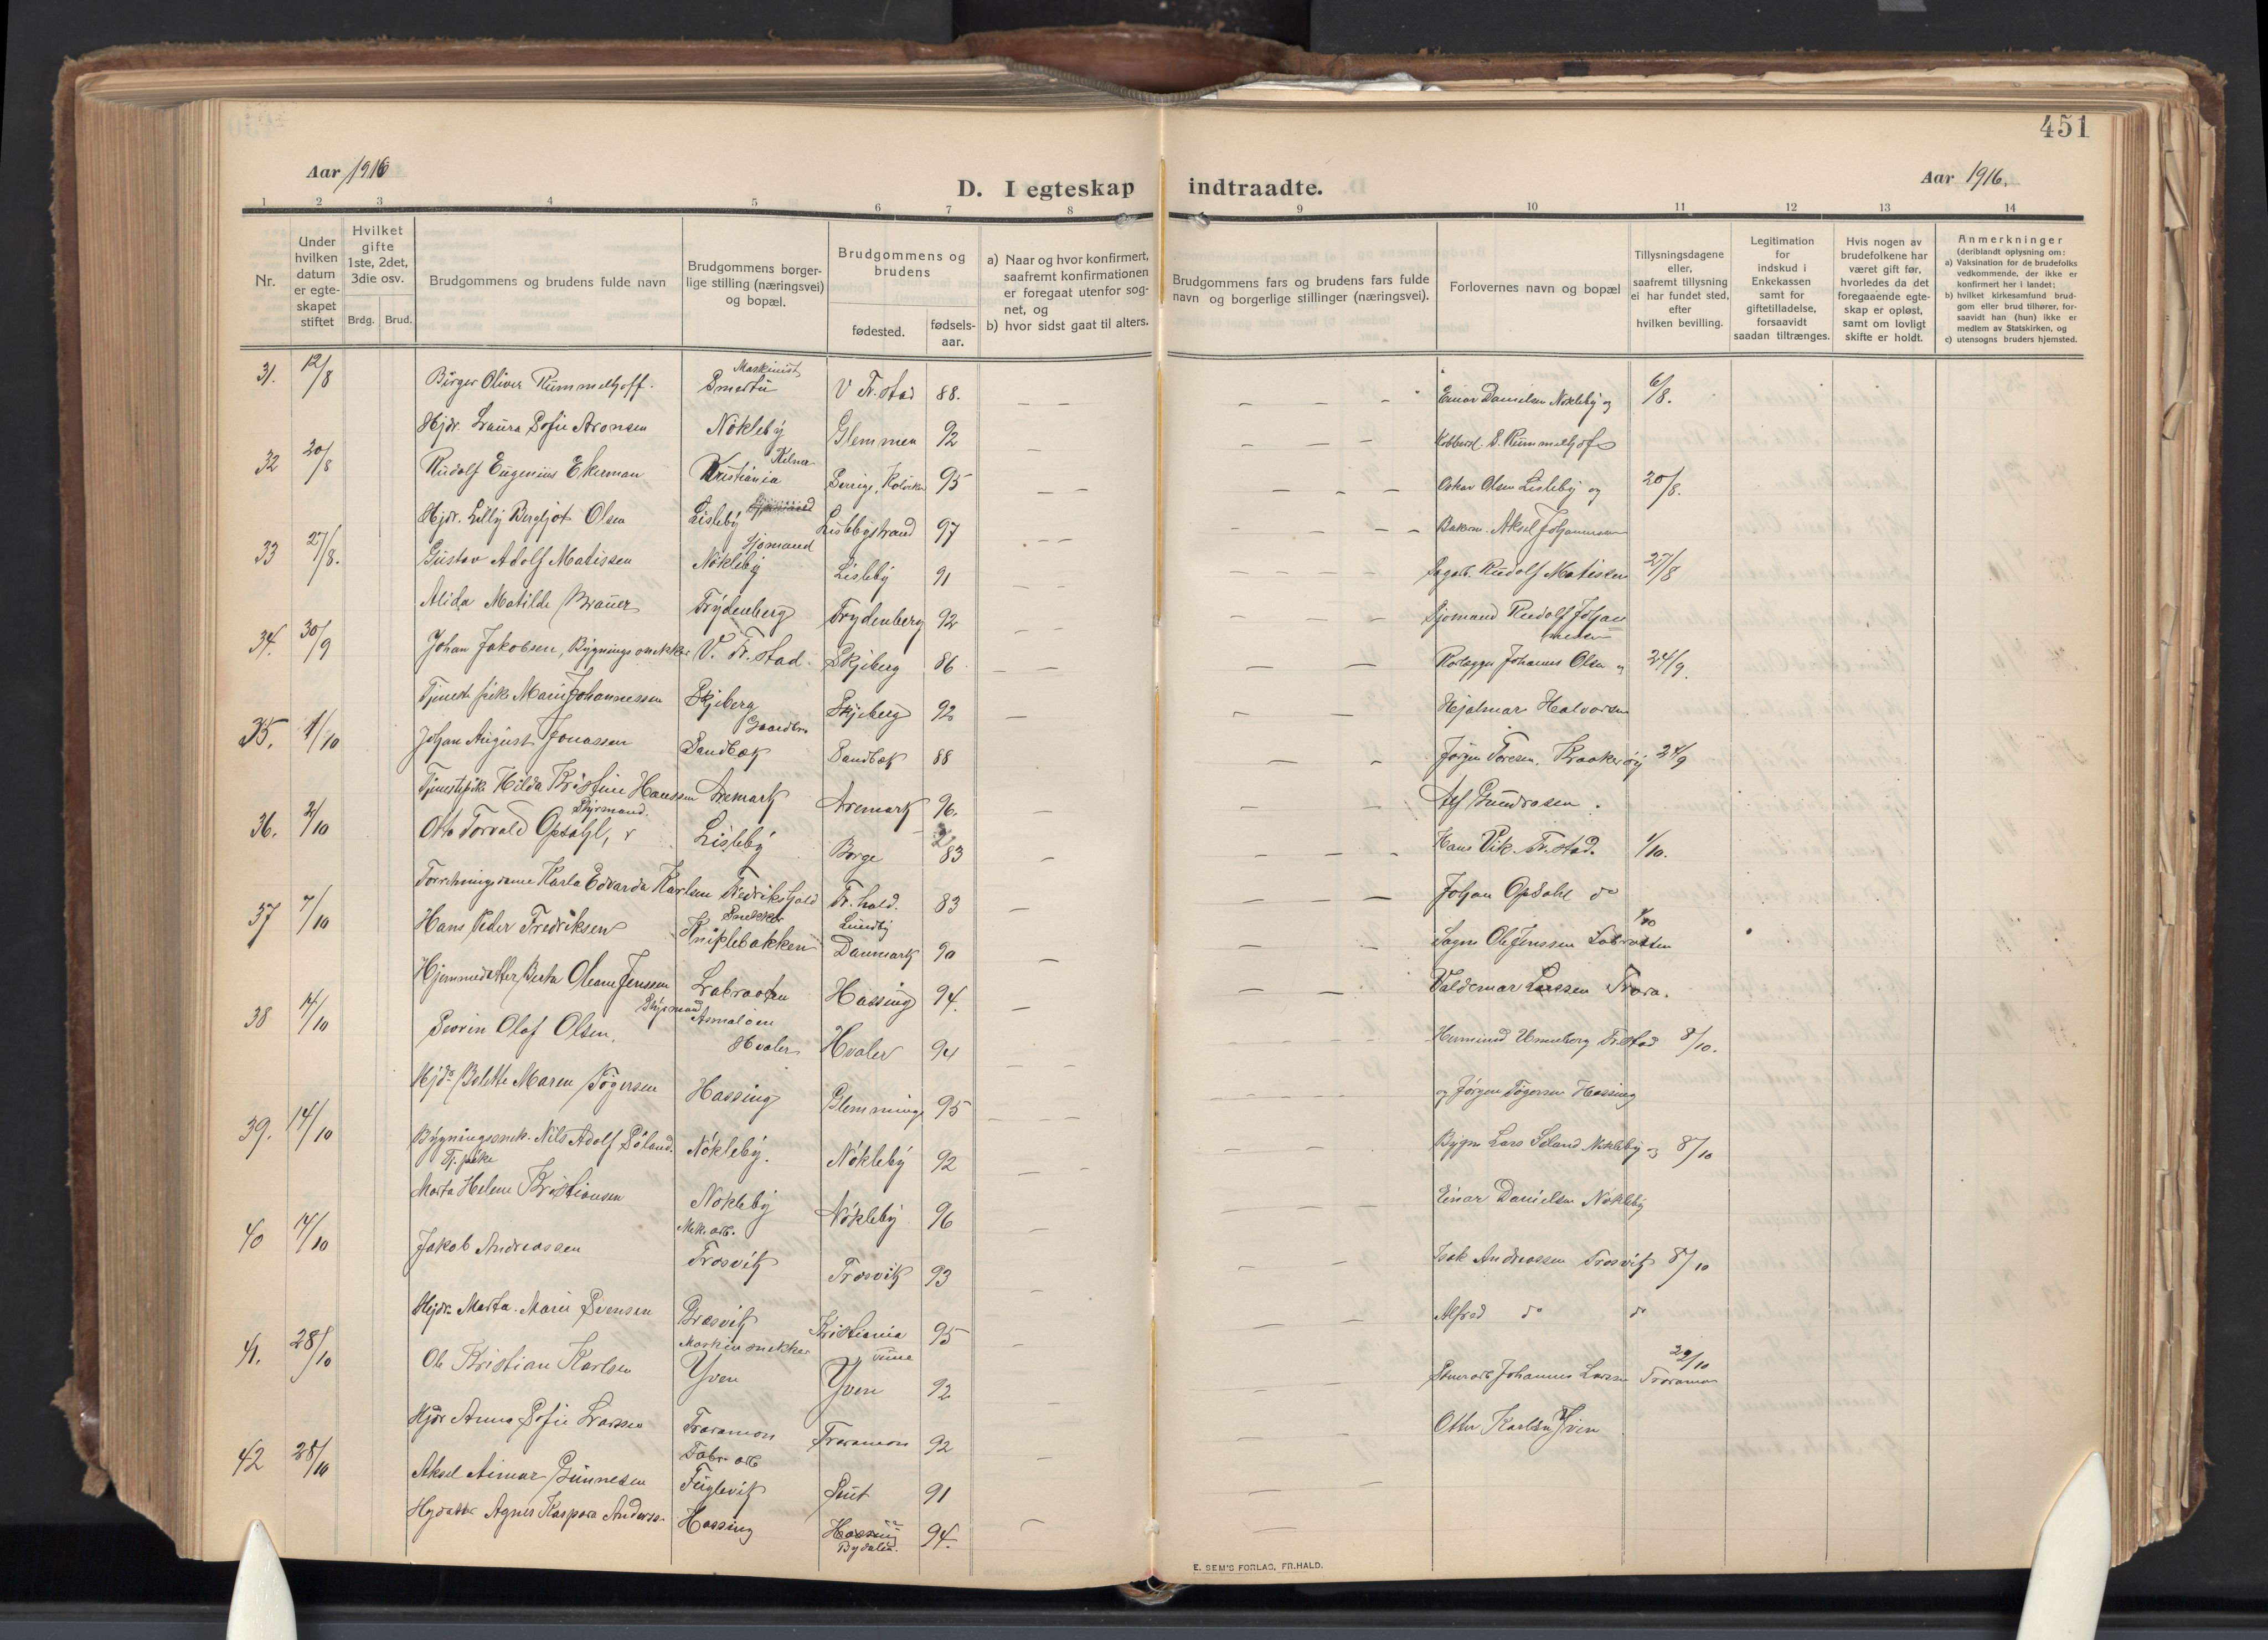 451
Aar 1916
D. I egteskap indtraadte.
Aar 1916.
1 2 3 4 5 6 7 8 9 10 11 12 13 14
Nr.
Under hvilken datum er egteskapet stiftet
Hvilket gifte 1ste, 2det, 3die osv.
Brdg. Brud.
Brudgommens og brudens fulde navn
Brudgommens borgerlige stilling (næringsvei) og bopæl.
Brudgommens og brudens
fødested.
fødselsaar.
a) Naar og hvor konfirmert, saafremt konfirmationen er foregaat utenfor sognet, og
b) hvor sidst gaat til alters.
Brudgommens fars og brudens fars fulde navn og borgerlige stillinger (næringsvei).
Forlovernes navn og bopæl
Tillysningsdagene eller, saafremt tillysning ei har fundet sted, efter hvilken bevilling.
Legitimation for indskud i Enkekassen samt for giftetilladelse, forsaavidt saadan tiltrænges.
Hvis nogen av brudefolkene har været gift før, hvorledes da det foregaaende egteskap er opløst, samt om lovligt skifte er holdt.
Anmerkninger
(deriblandt oplysning om:
a) Vaksination for de brudefolks vedkommende, der ikke er konfirmert her i landet;
b) hvilket kirkesamfund brudgom eller brud tilhører, forsaavidt han (hun) ikke er medlem av Statskirken, og
c) utensogns bruders hjemsted.
31. 12/8 Birger Oliver Rummelhoff. Maskinist Smertu V Fr.stad 88. Einar Danielsen Nökleby og 6/8.
Hjdr. Laura Sofie Aronsen Nökleby Glemmen 92 S. Rummelhoff
32 20/8 Rudolf Eugenius Ekerman Kelner Kristiania Sverige, 95 Oskar Olsen Lisleby og 20/8.
Hjdr. Lilly Bergljot Olsen Lisleby Lislebystrand 97 Aksel Johannesen
33 27/8. Gustav Adolf Matissen Sjömand Nökleby Lisleby 91 Rudolf Matissen 27/8
Alida Matilde Brauer Frydenberg Frydenberg 92 Sjömand Rudolf Johannesen
34. 30/9 Johan Jakobsen, Bygningssnekker V. Fr.stad Skjeberg 86 Johannes Olsen og 24/9.
Tjenestepike Marie Johannessen Skjeberg Skjeberg 92 Hjalmar Halvorsen
35. 1/10 Johan August Jonassen Gaardbr. Sandbæk Sandbæk 88 Jörgen Toresen, Kraakeröy 24/9
Tjenestepike Hilda Kristine Hanssen Aremark Aremark 96. Alf Gundrosen.
36. 2/10 Otto Torvald Opsahl, Styrmand. Lisleby Borge 83 Hans Vik. Fr.stad. 1/10.
Forretningsdame Karla Edvarda Karlsen Fredrikshald Fr.hald. 83 Johan Opsahl do
37 7/10 Hans Peder Fredriksen Snekker Kniplebakken Lundby Danmark 90 Ole Jenssen Labraaten 1/10
Hjemmedatter Berta Oleane Jenssen Labraaten Hassing 94. Valdemar Larssen Trara.
38 14/10 Severin Olaf Olsen, Styrmand Asmalöen Hvaler Hvaler 94 Hermund Unneberg Fr.stad 8/10.
Hjdr. Bolette Maren Tögersen Hassing Glemminge 95 og Jörgen Tögersen Hassing
39. 14/10 Bygningssnek. Nils Adolf Söland. Nökleby. Nökleby 92 Bygm Lars Söland Nökleby og 8/10
Tj. pike Marta Helene Kristiansen Nökleby Nökleby 96 Einar Danielsen Nökleby
40 14/10 Jakob Andreassen Mek. arb. Trosvik Trosvik 93 Isak Andreassen Trosvik 8/10
Hjdr. Marta. Marie Svensen Gresvik Kristiania 95 Alfred do do
41. 28/10 Ole Kristian Karlsen Maskinsnekker Yven Tune Yven 92 Johannes Larsen Traramon 22/10
Hjdr Anna Sofie Larssen Traramon Traramon 92 Otto Karlsen Yven
42 28/10 Aksel Aimar Gunnesen Fabr. arb Fuglevik 91
Hjdatter Agnes Kaspara Anderss. Hassing Hassing Bydalen. 94.
E. SEM'S FORLAG, FR.HALD.